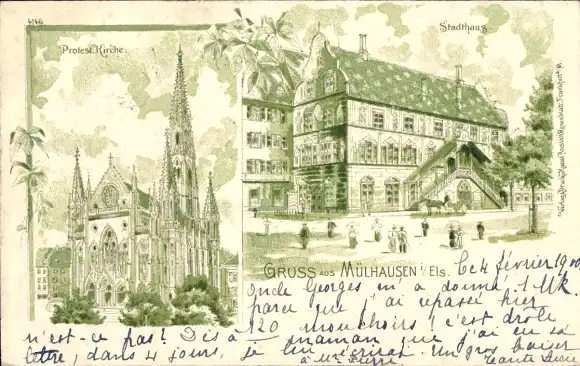 4146
Protest. Kirche.
Stadthaus
GRUSS AUS MÜLHAUSEN i/Els.
Ce 4 février 1900
Oncle Georges m'a donné 1 Mk.
parce que j'ai repassé hier
120 mouchoirs! c'est drôle
n'est-ce pas? Dis à maman que j'ai eu sa
lettre, dans 4 jours, je lui écrirai. Un gros baiser
à
tante Lucie